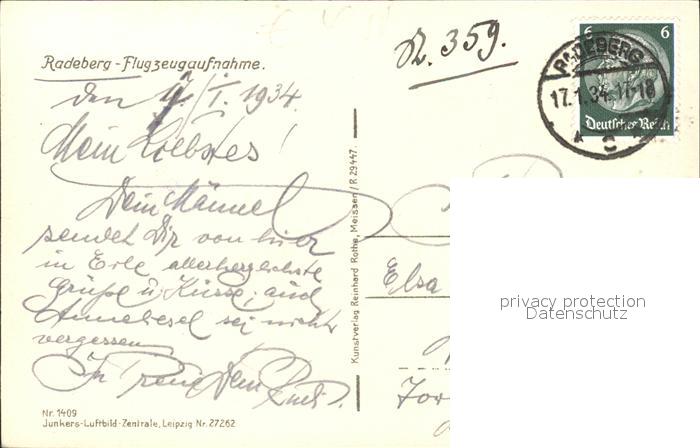 Radeberg - Flugzeugaufnahme.
N. 359.
6 6
RADEBERG
17.1.34.17-18
Deutsches Reich
den 17/I. 1934.
Mein Liebstes!
Dein Männel
sendet Dir von hier
in Eile allerherzlichste
Grüße u. Küsse; auch
Anneliesel sei nicht
vergessen
In Treue Dein Rudi.
Kunstverlag Reinhard Rothe, Meissen / R 29447.
Elsa
privacy protection
Datenschutz
Nr. 1409
Junkers-Luftbild-Zentrale, Leipzig Nr. 27262